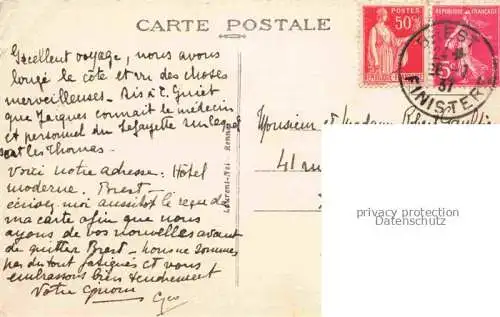 CARTE POSTALE
Excellent voyage, nous avons
longé la côte et vu des choses
merveilleuses. Dis à E. Guiet
que Jacques connaît le médecin
et personnel du Lafayette sur lequel
sont les Thomas.
Voici notre adresse: Hôtel
moderne. Brest.
écrivez moi aussitôt le reçu de
ma carte afin que nous
ayons de vos nouvelles avant
de quitter Brest - nous ne sommes
pas du tout fatigués et vous
embrassons bien tendrement
Votre
Laurent-Nel Rennes
50c
REPUBLIQUE FRANCAISE
BREST
37
FINISTERE
Monsieur et Madame
41 rue
privacy protection
Datenschutz